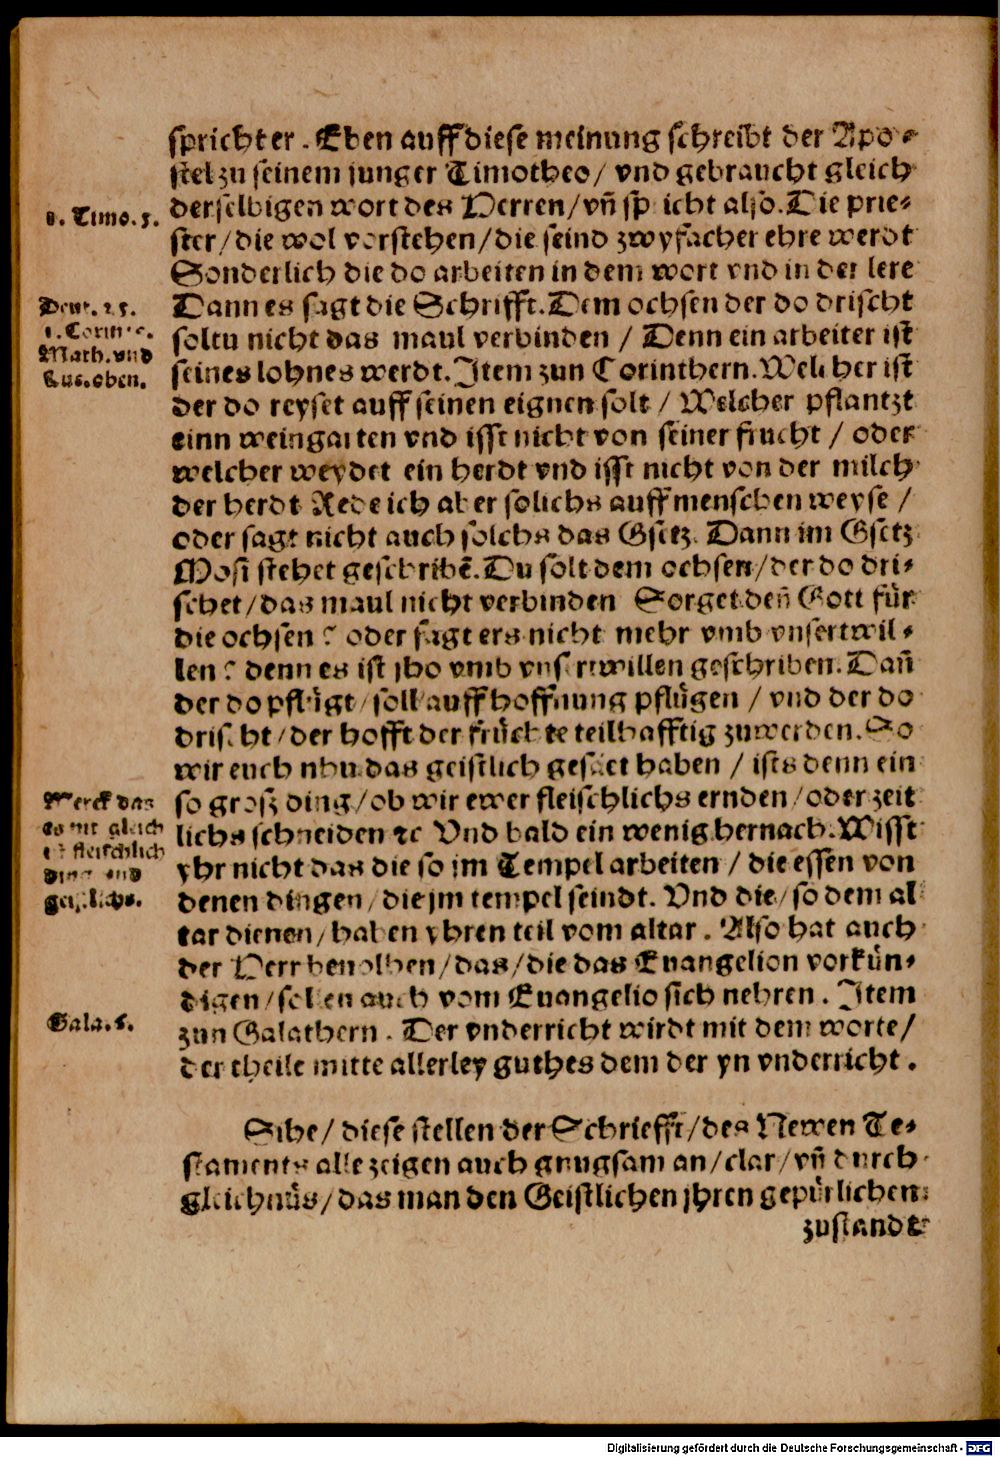 spricht er. Eben auff diese meinung schreibt der Apo-
stel zu seinem junger Timotheo/ vnd gebraucht gleich
derselbigen wort des Herren/ vñ spricht also. Die prie-
1. Timo. 5.
ster/ die wol vorstehen/ die seind zwyfacher ehre werdt
Sonderlich die do arbeiten in dem wort vnd in der lere
Deut. 25.
Dann es sagt die Schrifft. Dem ochsen der do drischt
1. Corint
soltu nicht das maul verbinden / Denn ein arbeiter ist
Math. vnd
Luc. oben.
seines lohnes werdt. Item zun Corinthern. Welcher ist
der do reyset auff seinen eignen solt / Welcher pflantzt
einn weingarten vnd isst nicht von seiner frucht / oder
welcher weydet ein herdt vnd isst nicht von der milch
der herdt Rede ich aber solichs auff menschen weyse /
oder sagt nicht auch solchs das Gsetz. Dann im Gsetz
Mosi stehet geschribē. Du solt dem ochsen/ der do dri-
schet/ das maul nicht verbinden Sorget deñ Gott für
die ochsen? oder sagt ers nicht mehr vmb vnsertwil-
len? denn es ist jho vmb vnsertwillen geschriben. Dañ
der do pflügt/ soll auff hoffnung pflügen / vnd der do
drischt/ der hofft der früchte teilhafftig zuwerden. So
wir euch nhu das geistlich gesäet haben / ists denn ein
Merck das
so grosz ding/ ob wir ewer fleischlichs ernden/ oder zeit
es nit gleich
fleischlich
lichs schneiden ꝛc Vnd bald ein wenig hernach. Wisst
yhr nicht das die so im Tempel arbeiten / die essen von
ding vnd
geistlichs.
denen dingen/ die jm tempel seindt. Vnd die/ so dem al
tar dienen/ haben yhren teil vom altar. Also hat auch
der Herr benolhen/ das/ die das Euangelion vorkün-
digen/ sollen auch vom Euangelio sich nehren. Item
Gala. 6.
zun Galathern. Der vnderricht wirdt mit dem worte/
der theile mitte allerley guthes dem der yn vnderricht.
Sihe/ diese stellen der Schriefft/ des Newen Te-
staments alle zeigen auch gnugsam an/ clar/ vñ durch
gleichnüs/ das man den Geistlichen jhren gepürlichen
zustandt
Digitalisierung gefördert durch die Deutsche Forschungsgemeinschaft - DFG